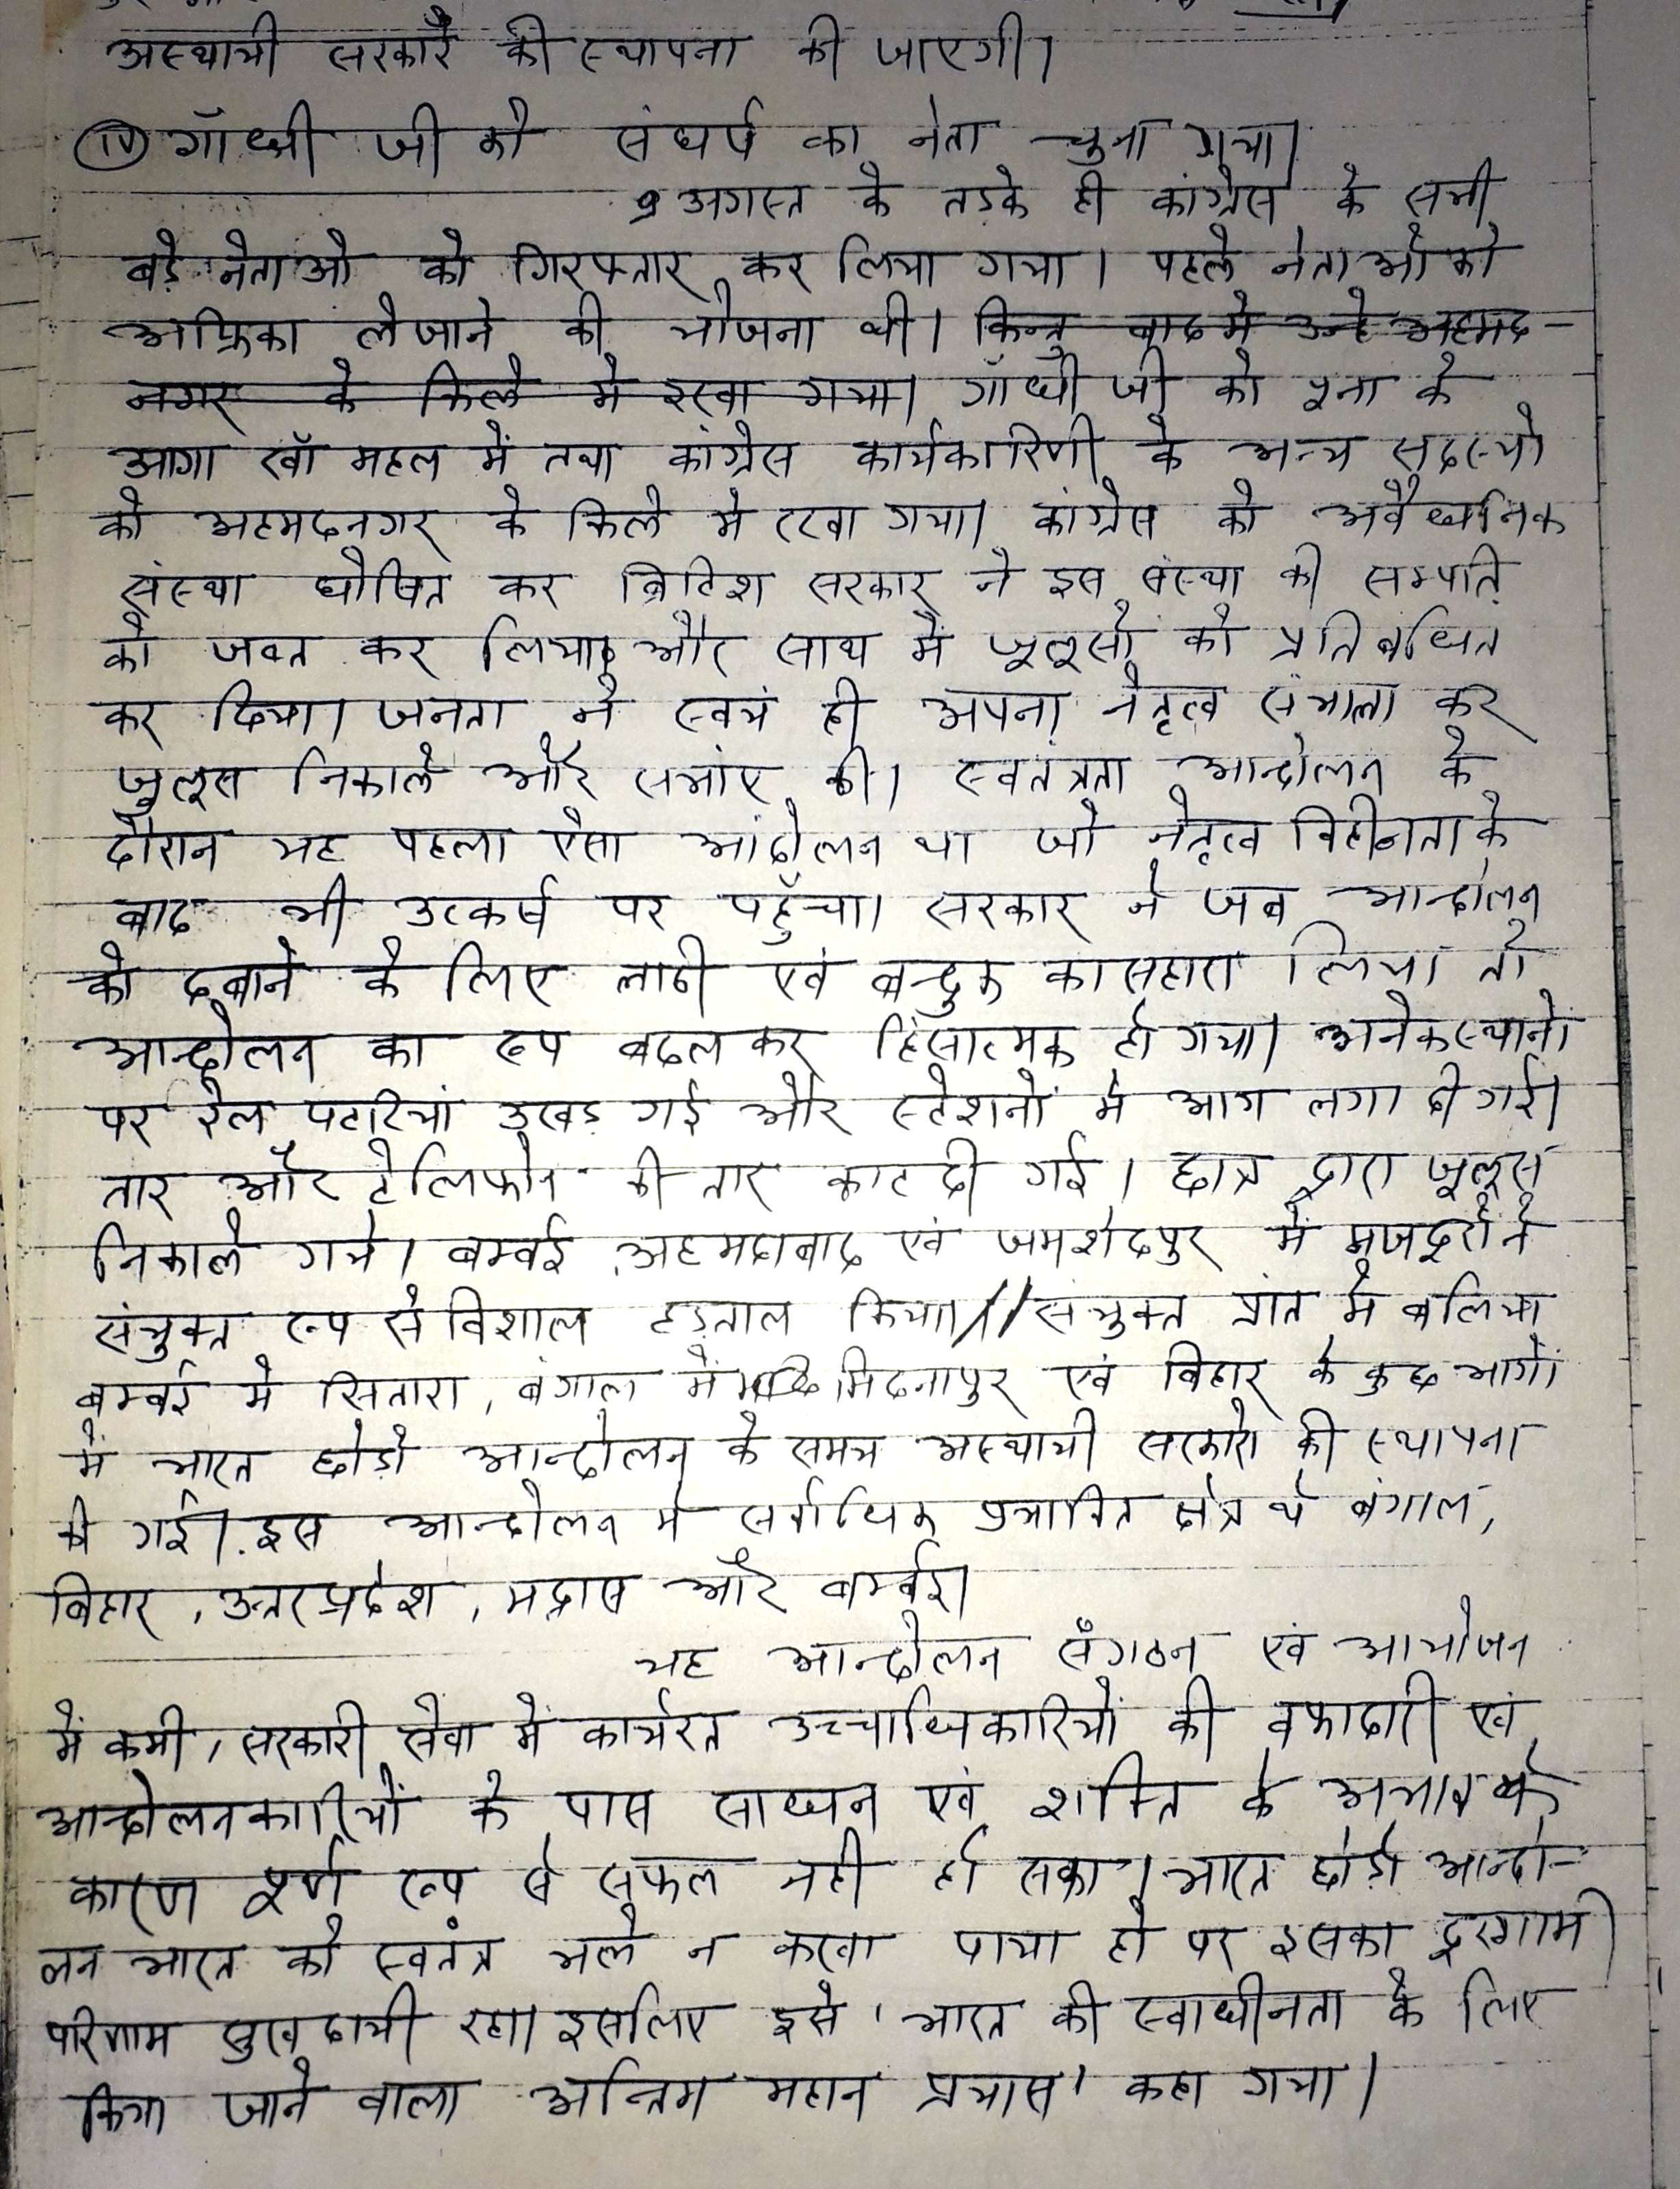 अस्थायी सरकारें की स्थापना की जाएगी।
(iv) गाँधी जी को संघर्ष का नेता चुना गया।
9 अगस्त के तडके ही कांग्रेस के सभी
बडे़ नेताओ को गिरफ्तार कर लिया गया। पहले नेताओं को
अफ्रिका ले जाने की योजना थी। किन्तु बाद मे उन्हे अहमद-
नगर के किले मे रखा गया। गाँधी जी को पूना के
आगा खाँ महल में तथा कांग्रेस कार्यकारिणी के अन्य सदस्यो
को अहमदनगर के किले मे रखा गया। कांग्रेस को अवैधानिक
संस्था घोषित कर ब्रिटिश सरकार ने इस संस्था की सम्पति
को जब्त कर लिया और साथ मे जूलूसों को प्रतिबंधित
कर दिया। जनता ने स्वयं ही अपना नेतृत्व संभाला कर
जुलूस निकाले और सभांए की। स्वतंत्रता आन्दोलन के
दौरान यह पहला ऐसा आंदोलन था जो नेतृत्व विहीनता के
बाद भी उत्कर्ष पर पहुँचा। सरकार ने जब आन्दोलन
को दबाने के लिए लाठी एवं बन्दुक का सहारा लिया तो
आन्दोलन का रूप बदलकर हिंसात्मक हो गया। अनेक स्थानो
पर रेल पटरियां उखड़ गई और स्टेशनों मे आग लगा दी गई।
तार और टेलिफोन की तार काट दी गई। छात्र द्वारा जूलूस
निकाले गये। बम्बई, अहमदाबाद एवं जमशेदपुर में मजदूरों ने
संयुक्त रूप से विशाल हड़ताल किया। // संयुक्त प्रांत मे बलिया
बम्बई मे सितारा, बंगाल में मिदनापुर एवं बिहार के कुछ भागों
में भारत छोडो़ आन्दोलन के समय अस्थायी सरकारो की स्थापना
की गई। इस आन्दोलन मे सर्वाधिक प्रभावित क्षेत्र थे बंगाल,
बिहार, उत्तरप्रदेश, मद्रास और बम्बई।
यह आन्दोलन संगठन एवं आयोजन
में कमी, सरकारी सेवा में कार्यरत उच्चाधिकारियों की वफादारी एवं
आन्दोलनकारियों के पास साधन एवं शक्ति के अभाव के
कारण पूर्ण रूप से सफल नही हो सका। भारत छोडो़ आन्दो-
लन भारत को स्वतंत्र भले न करवा पाया हो पर इसका दूरगामी
परिणाम सुखदायी रहा। इसलिए इसे 'भारत की स्वाधीनता के लिए
किया जाने वाला अन्तिम महान प्रयास' कहा गया।